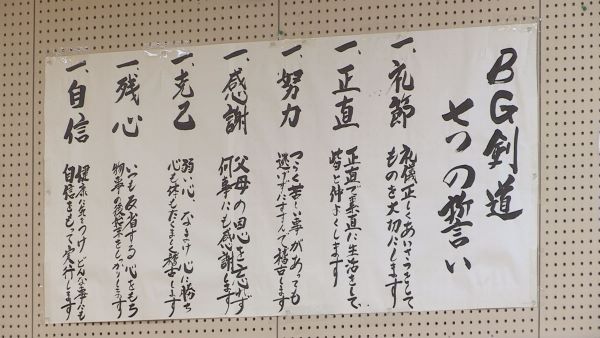 BG剣道
七つの誓い
一、礼節
礼儀正しくあいさつをして
ものを大切にします
一、正直
正直で素直に生活をして
皆と仲よくします
一、努力
つらく苦しい事があっても
逃げださずすすんで稽古します
一、感謝
父母の恩を忘れず
何事にも感謝します
一、克己
弱い心、なまけ心に勝ち
心も体もたくましく稽古します
一、残心
いつも反省する心をもち
物事の後始末をしっかりします
一、自信
健康に気をつけどんな事にも
自信をもって実行します